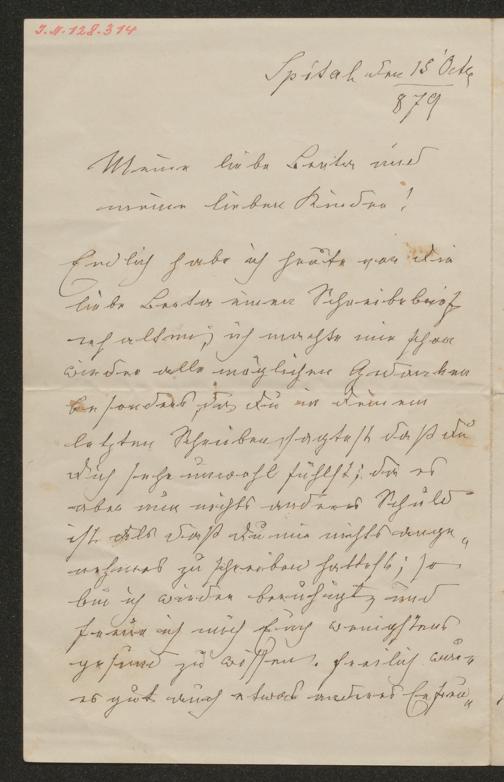 I.N. 128.314
Spital den 15 Octb
879
Meine liebe Berta und
meine lieben Kinder!
Endlich habe ich heute von dir
liebe Berta einen Schreibebrief
erhalten; ich machte mir schon
wieder alle möglichen Gedanken
besonders, da du in deinem
letzten Schreiben sagtest daß du
dich sehr unwohl fühlst; da es
aber nun nichts anderes Schuld
ist als daß du mir nichts ange„
nehmes zu schreiben hattest; so
bin ich wieder beruhigt, und
freue ich mich Euch wenigstens
gesund zu wissen. Freilich wär„
es gut auch etwas anderes Erfreu„